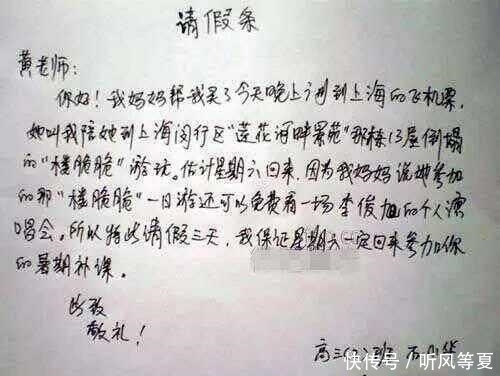 请假条
黄老师：
你好！我妈妈帮我买了今天晚上到上海的飞机票，
她叫我陪她到上海闵行区"莲花河畔景苑"那栋13层倒塌
的"楼脆脆"游玩。估计星期六回来，因为我妈妈说她参加
的那"楼脆脆"一日游还可以免费看一场李俊旭的个人演
唱会。所以特此请假三天，我保证星期六一定回来参加你
的暑期补课。
此致
敬礼！
高三(2)班
快传号/听风等夏